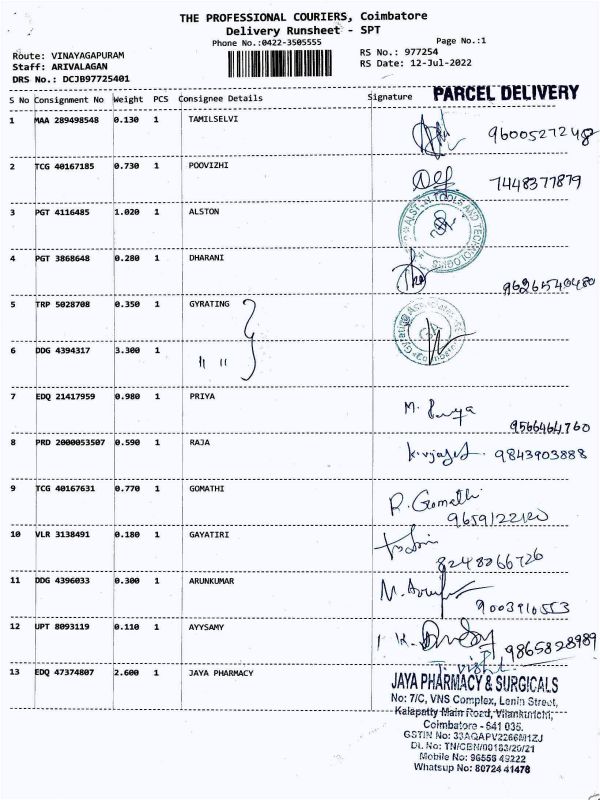 THE PROFESSIONAL COURIERS, Coimbatore
Delivery Runsheet - SPT
Phone No.:0422-3505555 Page No.:1
Route: VINAYAGAPURAM RS No.: 977254
Staff: ARIVALAGAN RS Date: 12-Jul-2022
DRS No.: DCJB97725401
S No Consignment No Weight PCS Consignee Details Signature PARCEL DELIVERY
1 MAA 289498548 0.130 1 TAMILSELVI 9600527248
2 TCG 40167185 0.730 1 POOVIZHI 7448377879
3 PGT 4116485 1.020 1 ALSTON
ALSTON TOOLS AND TECHNOLOGIES
4 PGT 3868648 0.280 1 DHARANI 9626540480
5 TRP 5028708 0.350 1 GYRATING
6 DDG 4394317 3.300 1 " "
7 EDQ 21417959 0.980 1 PRIYA M. Priya
9566464760
8 PRD 2000053507 0.590 1 RAJA 9843903888
9 TCG 40167631 0.770 1 GOMATHI R. Gomathi
9659122120
10 VLR 3138491 0.180 1 GAYATIRI
8248066726
11 DDG 4396033 0.300 1 ARUNKUMAR
9003910553
12 UPT 8093119 0.110 1 AYYSAMY 9865828989
13 EDQ 47374807 2.600 1 JAYA PHARMACY
JAYA PHARMACY & SURGICALS
No: 7/C, VNS Complex, Lenin Street,
Kalapatty Main Road, Vilankurichi,
Coimbatore - 641 035.
GSTIN No: 33AQAPV2266M1ZJ
DL No: TN/CBN/00183/20/21
Mobile No: 96556 49222
Whatsup No: 80724 41476